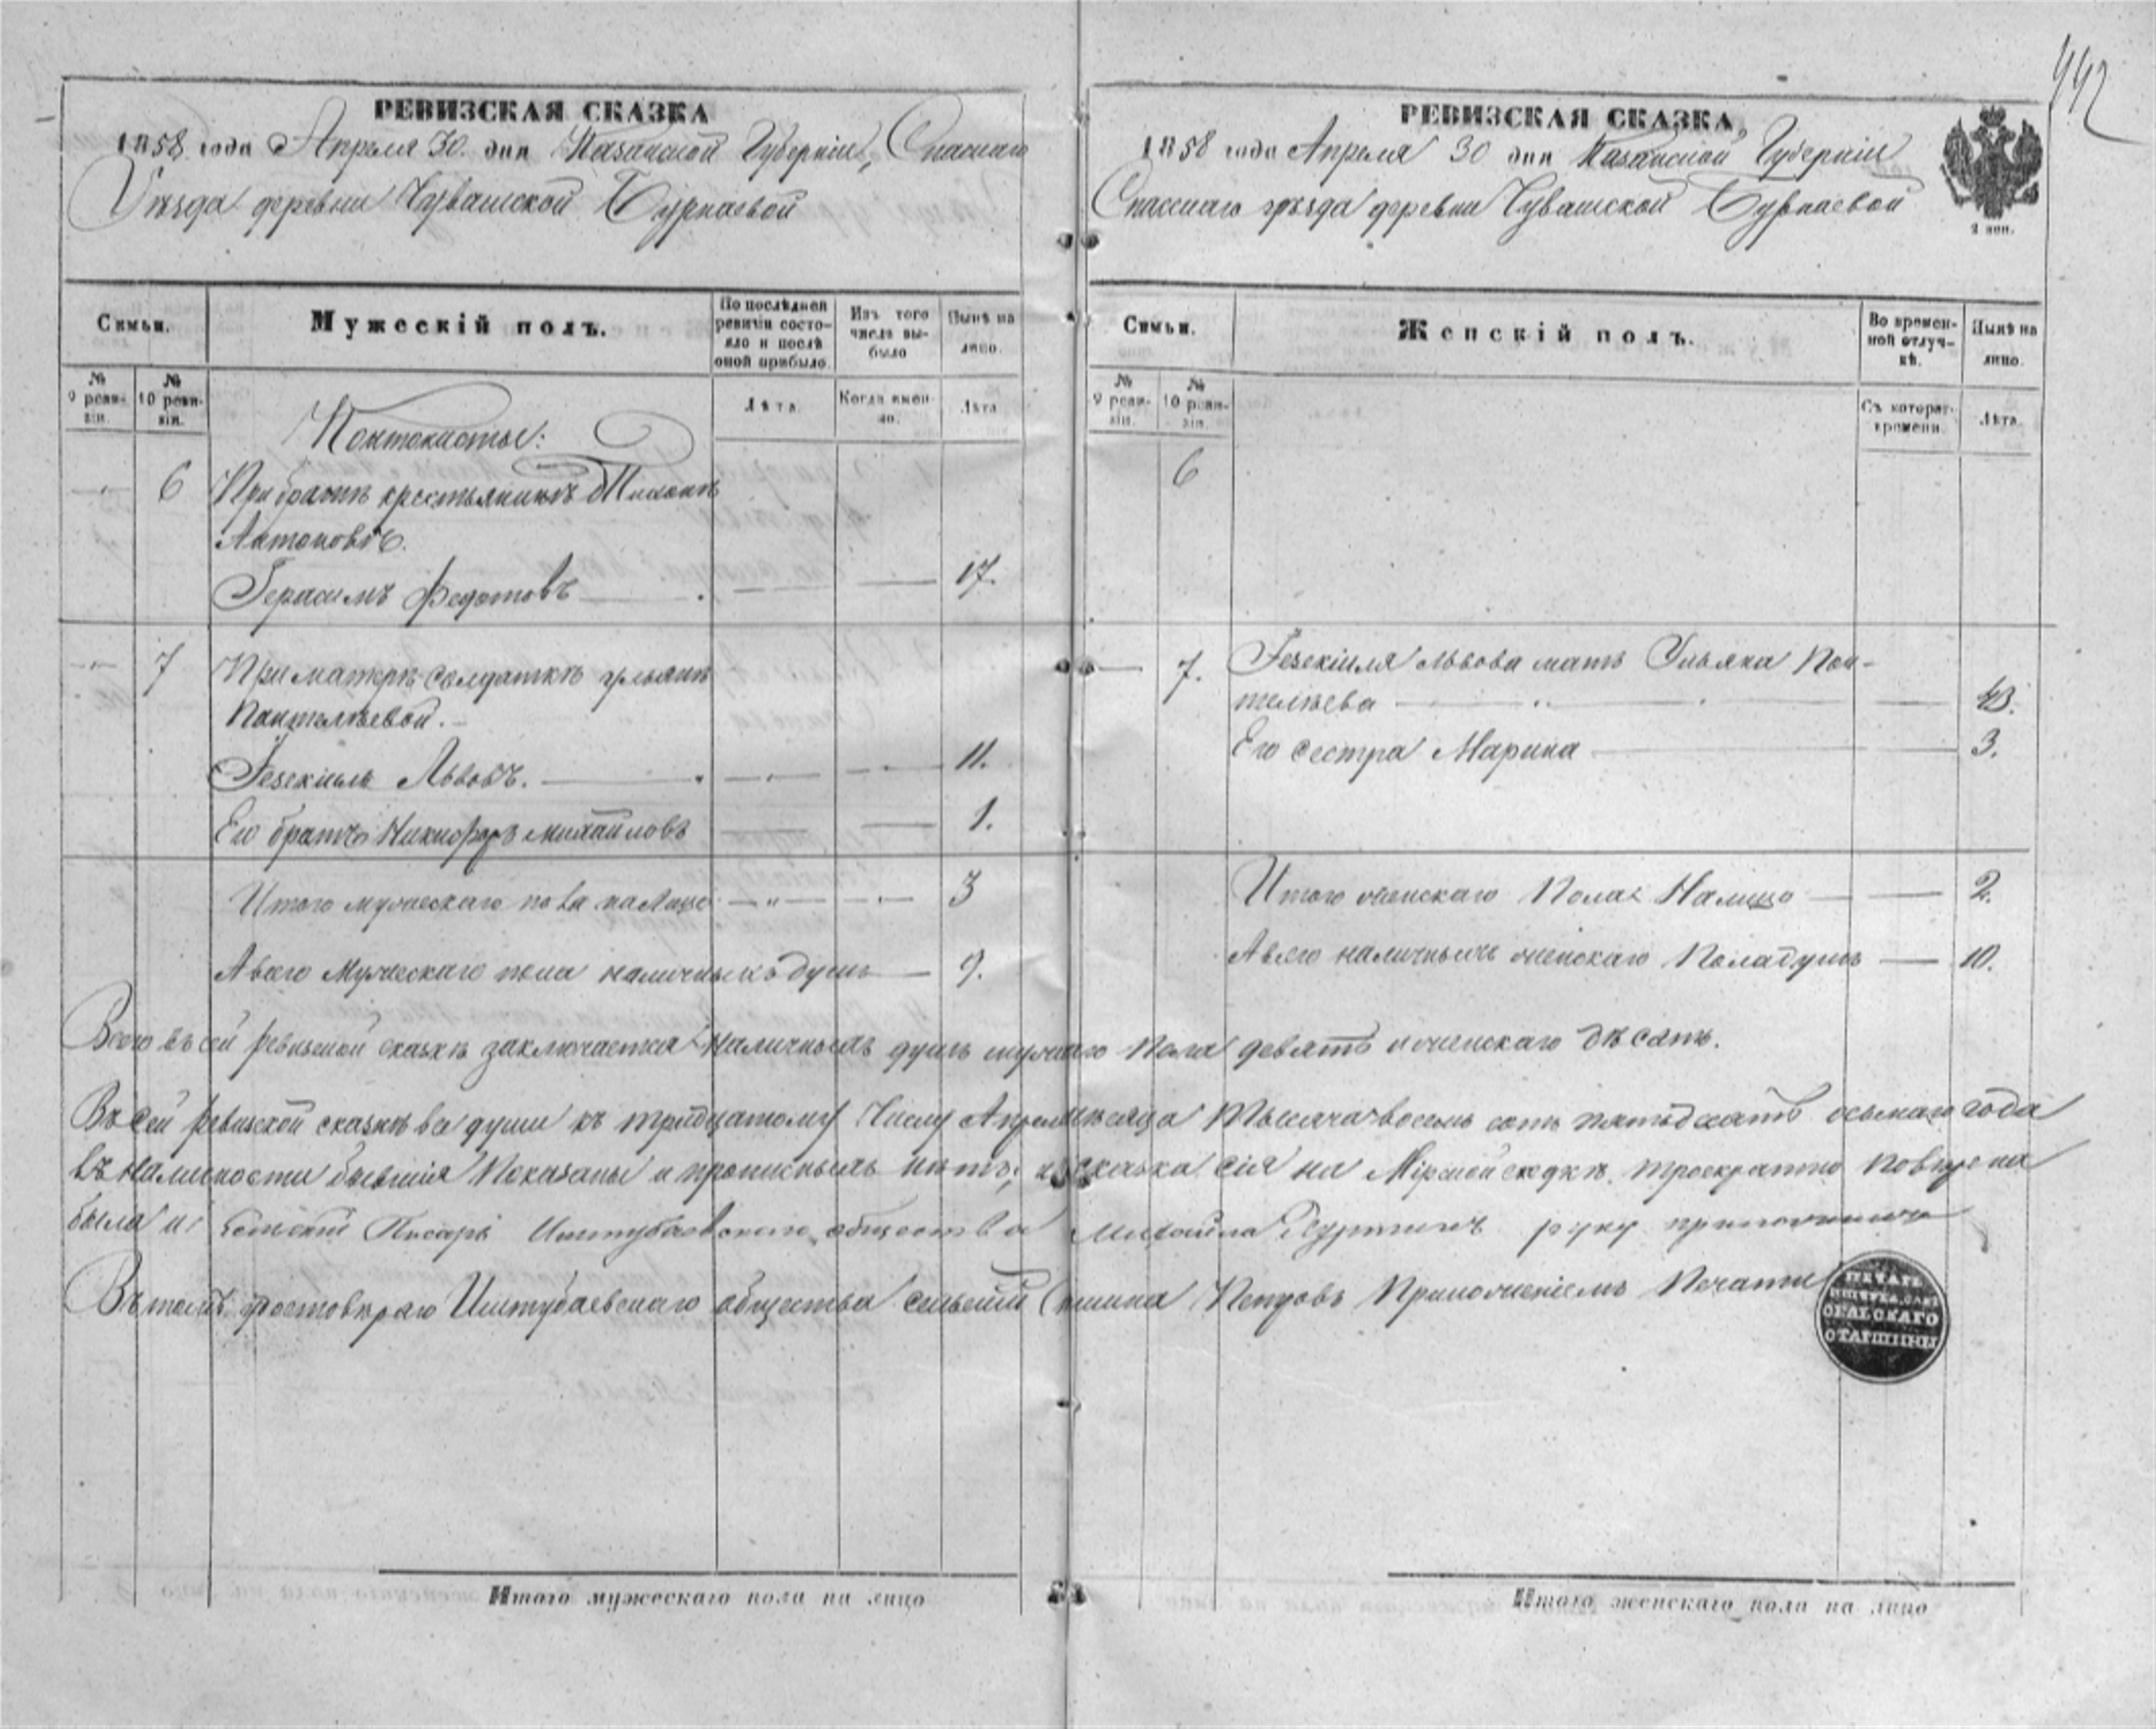 442
РЕВИЗСКАЯ СКАЗКА
1858 года Апреля 30 дня Казанской Губерніи, Спаскаго
Уѣзда деревни Чувашской Бурнаевой
Семьи.
Мужескій полъ.
По послѣдней ревизіи состояло и послѣ оной прибыло.
Изъ того числа выбыло
Нынѣ на лицо.
№ 9 ревизіи.
№ 10 ревизіи.
Лѣта.
Когда именно.
Лѣта
Кантонисты:
6 При братѣ крестьянинѣ
Антоновѣ.
Герасимъ Федотовъ 17.
7 При матерѣ солдаткѣ Ульянѣ
Пантелѣевой.
Іезекіиль Львовъ. 11.
Его братъ Никифоръ Михайловъ 1.
Итого мужескаго пола на лицо 3
А всего мужескаго пола наличныхъ душъ 9.
РЕВИЗСКАЯ СКАЗКА,
1858 года Апреля 30 дня Казанской Губерніи
Спаскаго уѣзда деревни Чувашской Бурнаевой
2 коп.
Семьи.
Женскій полъ.
Во временной отлучкѣ.
Нынѣ на лицо.
№ 9 ревизіи.
№ 10 ревизіи.
Съ котораго времени.
Лѣта.
6
7. Іезекіиля Львова мать Ульяна Пан-
телѣева 43.
Его сестра Марина 3.
Итого женскаго пола на лицо 2.
А всего наличныхъ женскаго пола душъ 10.
Всего въ сей ревизской сказкѣ заключается наличныхъ душъ мужскаго пола девять и женскаго десять.
Въ сей ревизской сказкѣ все души къ тридцатому числу Апреля мѣсяца тысяча восемь сотъ пятьдесятъ осьмаго года
въ наличности бывшія показаны и прописныхъ нѣтъ, и сказка сія на Мірской сходкѣ троекратно повѣрена
была и Сельскій Писарь Иштубаевскаго общества Михайла руку приложилъ
Въ томъ удостовѣряю Иштубаевскаго общества сельскій старшина Петровъ приложеніемъ печати
ПЕЧАТЬ
СЕЛЬСКАГО
СТАРШИНЫ
Итого мужескаго пола на лицо
Итого женскаго пола на лицо